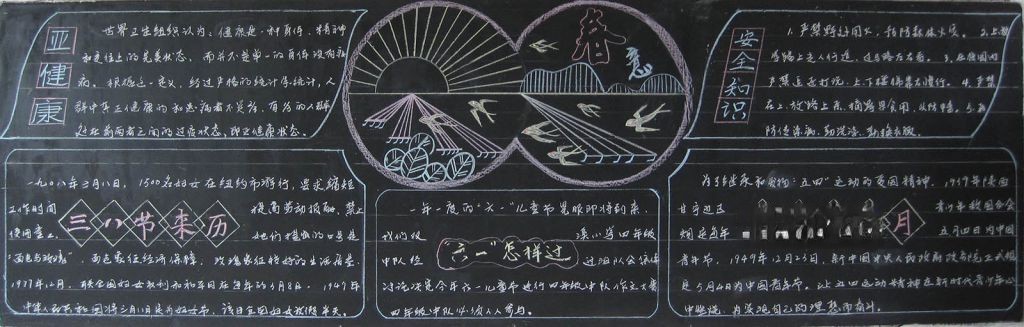 亚健康
世界卫生组织认为，健康是一种身体、精神
和交往上的完美状态，而并不是单一的身体没有疾
病。根据这一定义，经过严格的统计学统计，人
群中真正健康和患病者不足
处在前两者之间的过度状态，即亚健康状态。
春意
安全知识
1.严禁野外用火，预防森林火灾。2.上放
学路上走人行道，过马路左右看。3.
严禁追逐打闹，上下楼梯靠右慢行。4.严禁
在上、放学路上采、摘野果食用，以防中毒。5.
防传染病，勤洗澡，勤换衣服。
三八节来历
一九〇八年三月八日，1500名妇女在纽约市游行，要求缩短
工作时间 提高劳动报酬，禁止
使用童工 她们提出的口号是
"面包与玫瑰" 面包象征经济保障，玫瑰象征较好的生活质量。
1977年12月，联合国妇女权利和和平日在每年的3月8日。1949年
中华人民共和国将三月八日定为妇女节，该日全国妇女放假半天。
"六一"怎样过
一年一度的"六一"儿童节晃眼即将到来，
我们级 溪小学四年级
中队经 过组队会集体
讨论决定今年六一儿童节进行四年级中队作文大赛
四年级中队 人参与。
月
为了继承和发扬"五四"运动的爱国精神，1939年陕西
甘宁边区 青少年救国会
规定每年 五月四日为中国
青年节，1949年12月23日，新中国中央人民政府政务院正式规
定5月4日为中国青年节。让五四运动精神在新时代青少年心
中